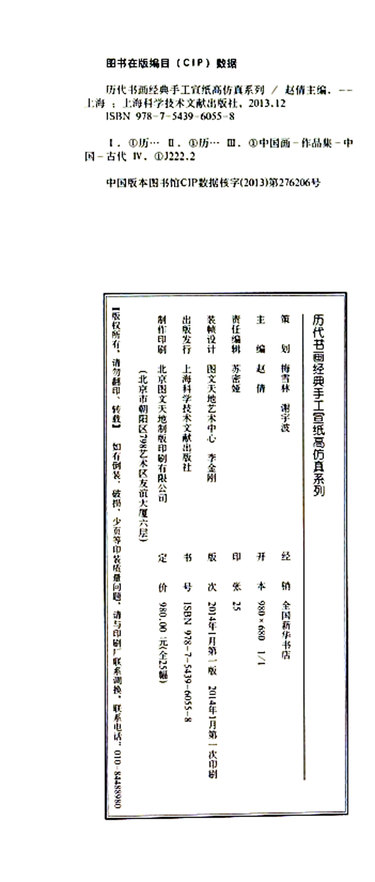 图书在版编目(CIP)数据
历代书画经典手工宣纸高仿真系列 / 赵倩主编. --
上海 : 上海科学技术文献出版社, 2013.12
ISBN 978-7-5439-6055-8
Ⅰ. ①历… Ⅱ. ①历… Ⅲ. ③中国画-作品集-中
国-古代 Ⅳ. ①J222.2
中国版本图书馆CIP数据核字(2013)第276206号
历代书画经典手工宣纸高仿真系列
策 划 梅雪林 谢宇波 经 销 全国新华书店
主 编 赵 倩 开 本 980×680 1/1
责任编辑 苏密娅 印 张 25
装帧设计 图文天地艺术中心 李金刚 版 次 2014年1月第一版 2014年1月第一次印刷
出版发行 上海科学技术文献出版社 书 号 ISBN 978-7-5439-6055-8
制作印刷 北京图文天地制版印刷有限公司 定 价 980.00 元(全25幅)
(北京市朝阳区798艺术区友谊大厦六层)
【版权所有,请勿翻印、转载】 如有倒装、破损、少页等印装质量问题,请与印刷厂联系调换,联系电话:010-84488980